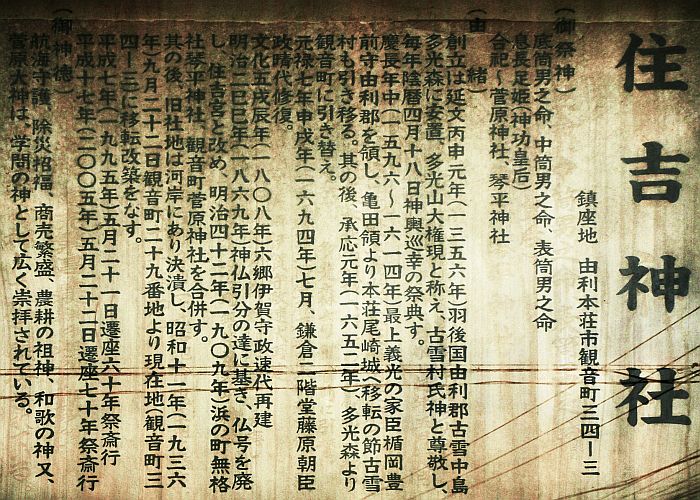 住吉神社
鎮座地 由利本荘市観音町三四ー三
（御祭神）
底筒男之命、中筒男之命、表筒男之命
息長足姫（神功皇后）
合祀〜菅原神社、琴平神社
（由 緒）
創立は延文丙申元年（一三五六年）羽後国由利郡古雪中島
多光森に安置、多光山大権現と称え、古雪村氏神と尊敬し、
毎年陰暦四月十八日神輿巡幸の祭典す。
慶長年中（一五九六〜一六一四年）最上義光の家臣楯岡豊
前守由利郡を領し、亀田領より本荘尾崎城（移転の節古雪
村も引き移る。其の後、承応元年（一六五二年）多光森より
観音町に引き替え。
元禄七年申戌年（一六九四年）七月、鎌倉二階堂藤原朝臣
政晴代修復。
文化五戊辰年（一八〇八年）六郷伊賀守政速代再建
明治二己巳年（一八六九年）神仏引分の達に基き、仏号を廃
し、住吉宮と改め、明治四十二年（一九〇九年）浜の町無格
社琴平神社、観音町菅原神社を合併す。
其の後、旧社地は河岸にあり決潰し、昭和十一年（一九三六
年）九月二十二日観音町二十九番地より現在地（観音町三
四ー三）に移転改築をなす。
平成七年（一九九五年）五月二十一日遷座六十年祭斎行
平成十七年（二〇〇五年）五月二十二日遷座七十年祭斎行
（御神徳）
航海守護、除災招福、商売繁盛、農耕の祖神、和歌の神又、
菅原大神は、学問の神として広く崇拝されている。